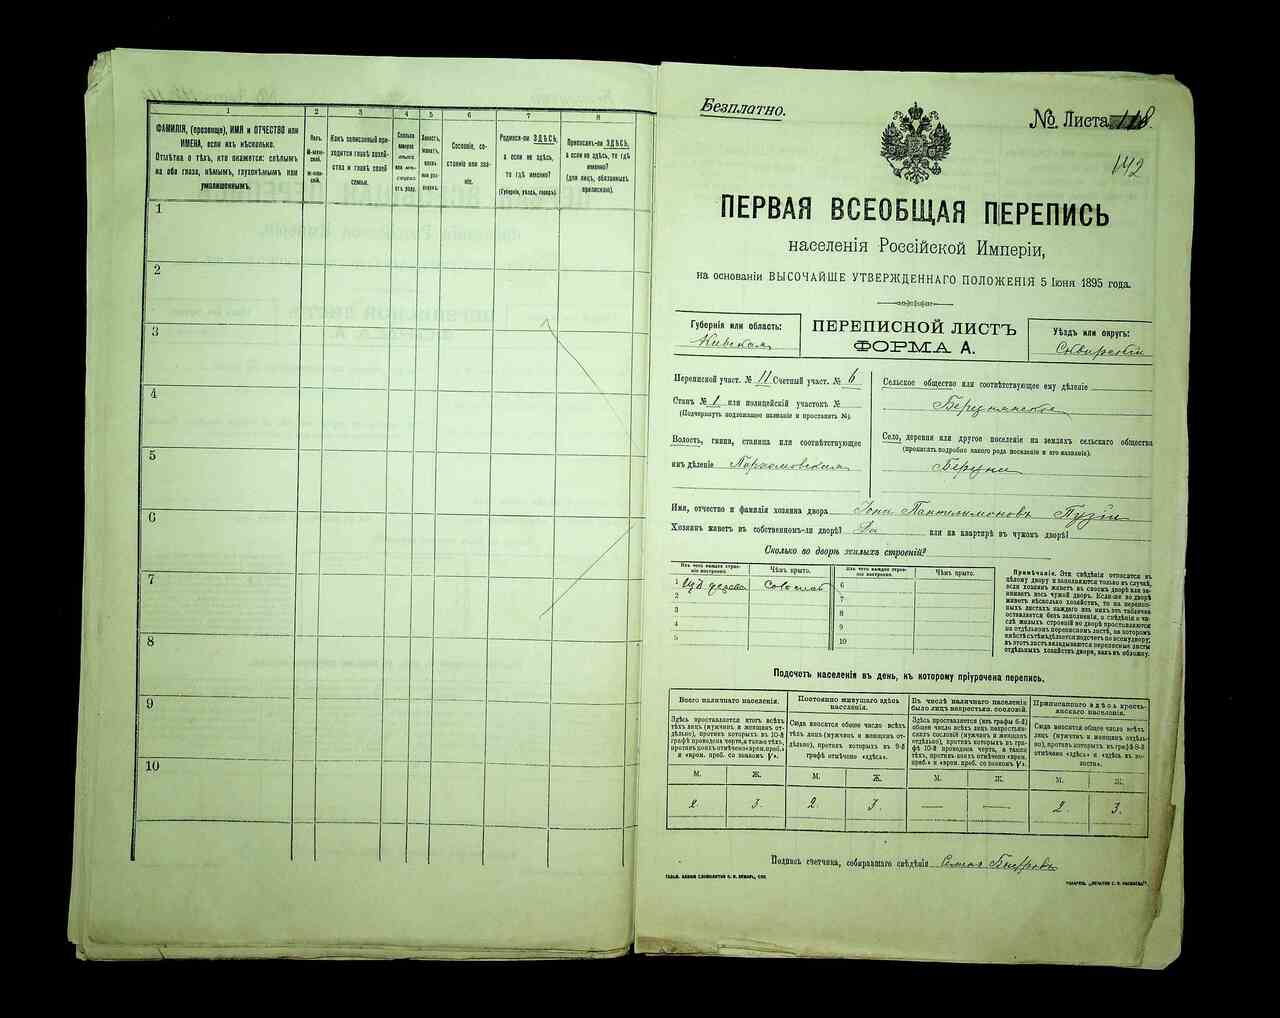 1
2
3
4
5
6
7
8
ФАМИЛІЯ, (прозвище), ИМЯ и ОТЧЕСТВО или
ИМЕНА, если ихъ нѣсколько.
ОТМѢТКА О ТѢХЪ, кто окажется: слѣпымъ
на оба глаза, нѣмымъ, глухонѣмымъ или
умалишеннымъ.
Полъ.
М-мужской.
Ж-женскій.
Какъ записанный приходится главѣ хозяйства и главѣ своей семьи.
Сословіе, состояніе или званіе.
Родился-ли ЗДѢСЬ,
а если не здѣсь,
то гдѣ именно?
(Губернія, уѣздъ, городъ).
Приписанъ-ли ЗДѢСЬ,
а если не здѣсь, то гдѣ
именно?
(для лицъ, обязанныхъ
припискою).
1
2
3
4
5
6
7
8
9
10
Безплатно.
№ Листа 118.
142
ПЕРВАЯ ВСЕОБЩАЯ ПЕРЕПИСЬ
населенія Россійской Имперіи,
на основаніи ВЫСОЧАЙШЕ УТВЕРЖДЕННАГО ПОЛОЖЕНІЯ 5 Іюня 1895 года.
Губернія или область:
Кіевская
ПЕРЕПИСНОЙ ЛИСТЪ
ФОРМА А.
Уѣздъ или округъ:
Сквирскій
Переписной участ. № 11 Счетный участ. № 6
Станъ № 1 или полицейскій участокъ №
(Подчеркнуть подлежащее названіе и проставить №).
Волость, гмина, станица или соотвѣтствующее
имъ дѣленіе Пархомовская
Сельское общество или соотвѣтствующее ему дѣленіе
Березнянское
Село, деревня или другое поселеніе на земляхъ сельскаго общества
(прописать подробно какого рода поселеніе и его названіе).
Имя, отчество и фамилія хозяина двора Іона Пантелимоновъ Пузій
Хозяинъ живетъ въ собственномъ-ли дворѣ? Да или на квартирѣ въ чужомъ дворѣ?
Сколько во дворѣ жилыхъ строеній?
Изъ чего каждое строеніе построено.
Чѣмъ крыто.
Изъ чего каждое строеніе построено.
Чѣмъ крыто.
1 Изъ дерева Соломой
2
3
4
5
6
7
8
9
10
Примѣчаніе. Эти свѣдѣнія относятся къ
цѣлому двору и заполняются только въ случаѣ,
если хозяинъ живетъ въ своемъ дворѣ или занимаетъ весь чужой дворъ. Если же во дворѣ
живетъ нѣсколько хозяйствъ, то на переписныхъ листахъ каждаго изъ нихъ эта табличка
оставляется безъ заполненія, а свѣдѣнія о числѣ жилыхъ строеній во дворѣ проставляются
на отдѣльномъ переписномъ листѣ, на которомъ
вмѣстѣ съ тѣмъ дѣлается подсчетъ по всему двору;
въ этотъ листъ вкладываются переписные листы
отдѣльныхъ хозяйствъ двора, какъ въ обложку.
Подсчетъ населенія въ день, къ которому пріурочена перепись.
Всего наличнаго населенія.
Постоянно живущаго здѣсь
населенія.
Въ числѣ наличнаго населенія
было лицъ некрестьян. сословій.
Приписаннаго здѣсь крестьянскаго населенія.
Здѣсь проставляется итогъ всѣхъ
лицъ (мужчинъ и женщинъ отдѣльно), противъ которыхъ въ 10-й
графѣ проведена черта, а также тѣхъ,
противъ коихъ отмѣчено «врем. преб.»
и «врем. преб. со знакомъ V».
Сюда вносится общее число всѣхъ
тѣхъ лицъ (мужчинъ и женщинъ отдѣльно), противъ которыхъ въ 9-й
графѣ отмѣчено «здѣсь».
Здѣсь проставляется (изъ графы 6-й)
общее число всѣхъ лицъ некрестьянскихъ сословій (мужчинъ и женщинъ
отдѣльно), противъ которыхъ въ графѣ 10-й проведена черта, а также
тѣхъ, противъ коихъ отмѣчено «врем.
преб.» и «врем. преб. со знакомъ V».
Сюда вносится общее число всѣхъ
лицъ (мужчинъ и женщинъ отдѣльно), противъ которыхъ въ графѣ 8-й
отмѣчено «здѣсь» и «здѣсь въ волости».
М. Ж. М. Ж. М. Ж. М. Ж.
2. 3. 2. 3. — — 2. 3.
Подпись счетчика, собиравшаго свѣдѣнія